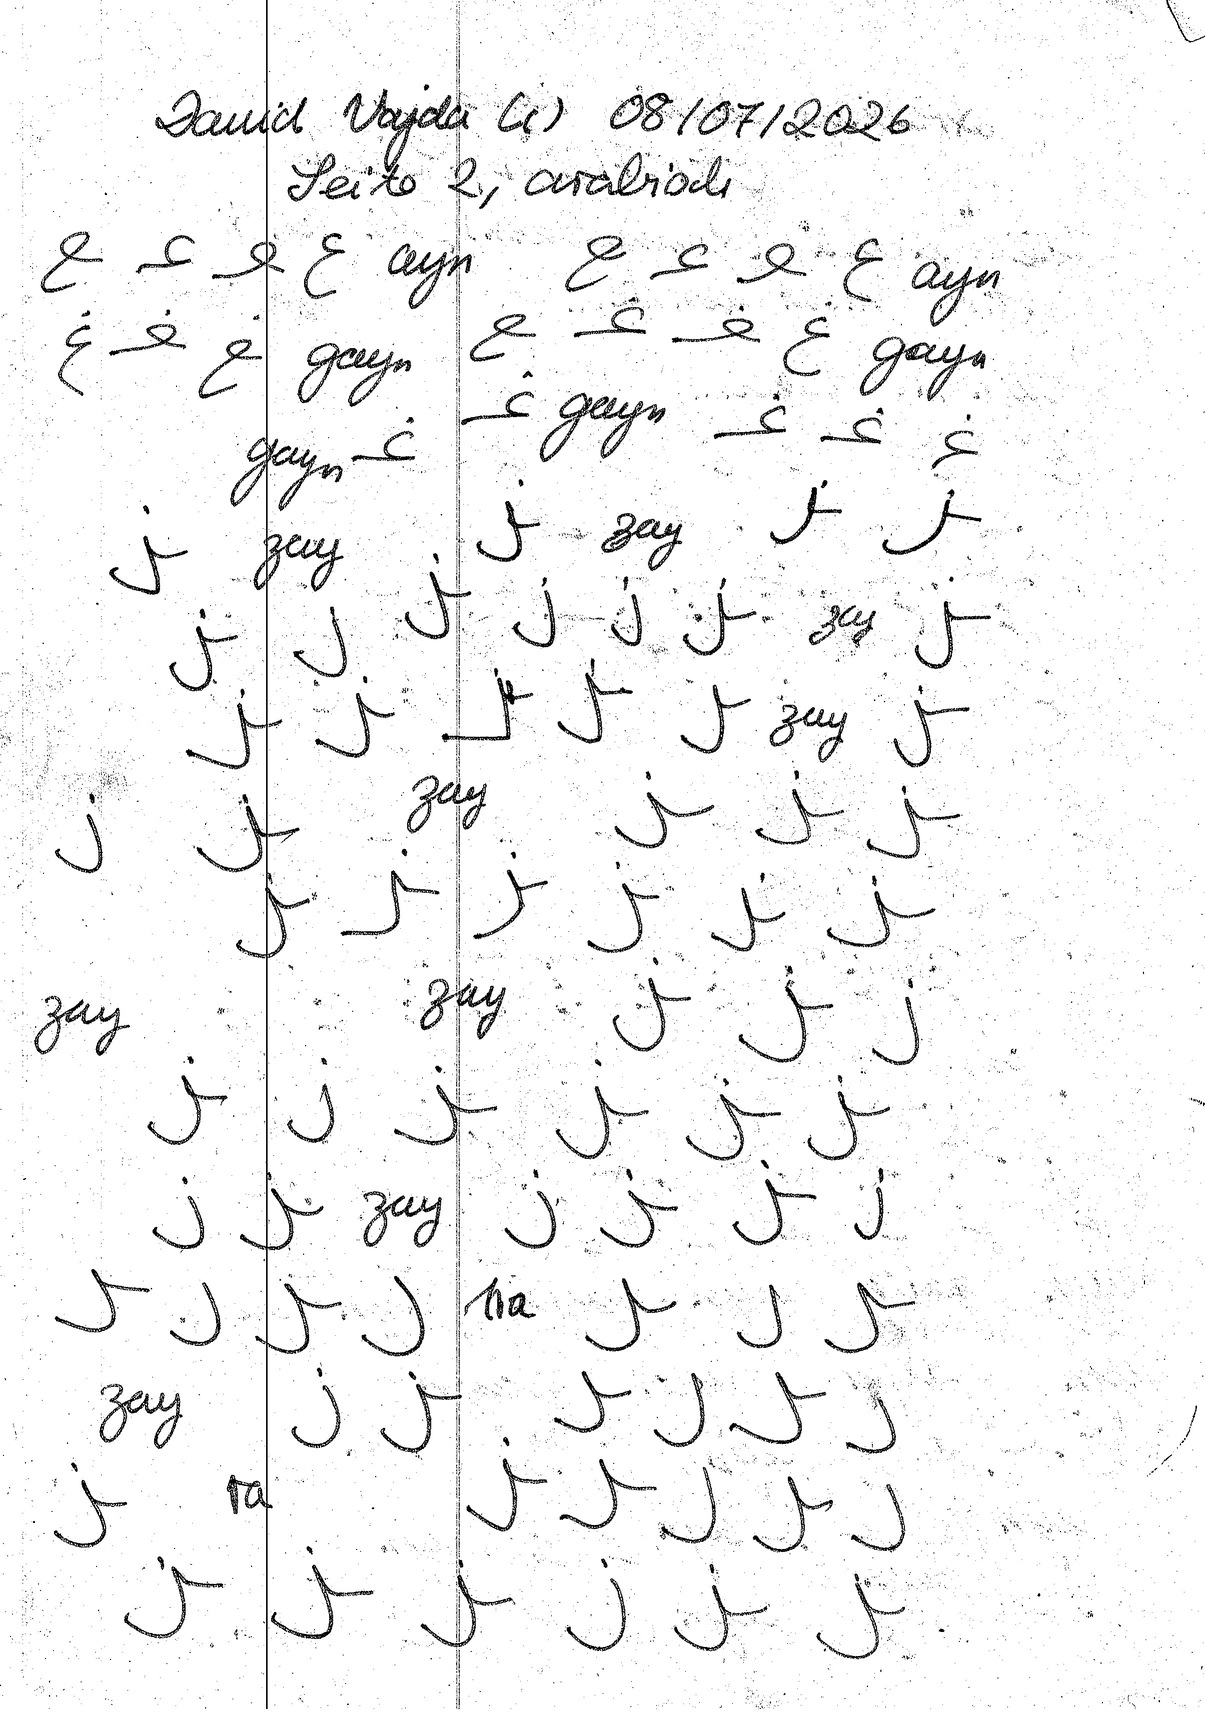 David Vajda (i) 08/07/2026
Seite 2, arabisch
ع ـع ـعـ عـ ayn ع ـعـ عـ ayn
غ ـغـ ـغ gayn ـغ غـ ـغـ غ gayn
gayn غـ غـ gayn غـ غـ غـ
ـز zay ـز zay ـز ـز
ـز ز ـز ز ز ـز zay ـز
ـز ـز ـز ـز ـر zay ـز
ز ـز zay ـز ـز ـز
ـز ـز ـز ـز ـز ـز
zay zay ـز ـز ز
ـز ز ـز ـز ـز ـز
ز ـز zay ز ـز ـز ز
ـر ر ـر ر ra ـر ر ـر
zay ز ـز ـر ر ـر ر
ـز ra ـز ـر ر ـر ر
ـز ـز ـز ز ـز ـز